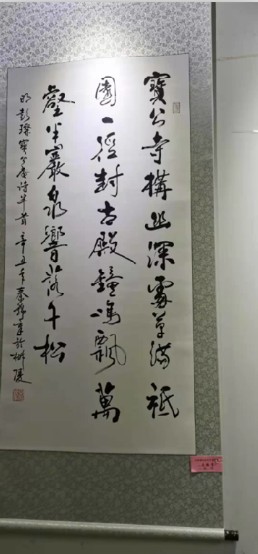 寶公寺構幽深處草滿祇
園一徑封古殿鐘鳴飄萬
壑半巖泉響落千松
明彭 寶公庵詩半首辛丑冬秦 書於 陵